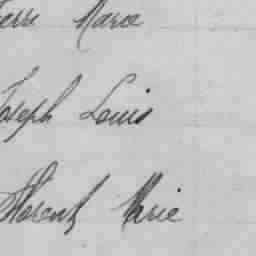 Marie
Joseph Louis
Florent Marie